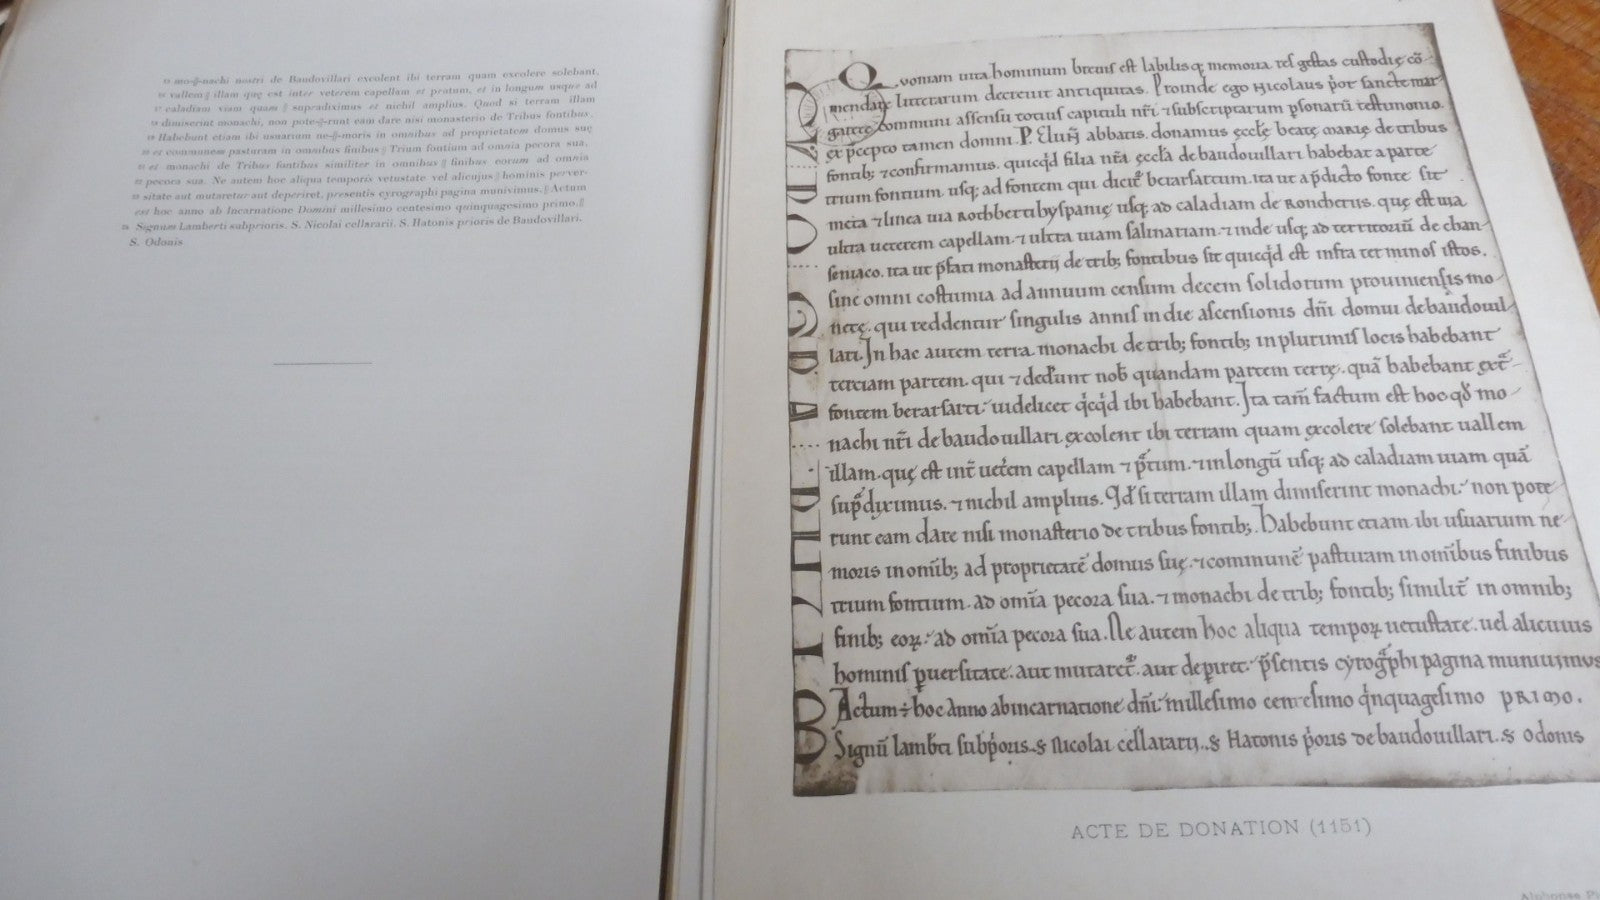 15 mo-‖-nachi nostri de Baudovillari excolent ibi terram quam excolere solebant,
16 vallem ‖ illam quę est inter veterem capellam et pratum, et in longum usque ad
17 caladiam viam quam ‖ supradiximus et nichil amplius. Quod si terram illam
18 dimiserint monachi, non pote-‖-runt eam dare nisi monasterio de Tribus fontibus.
19 Habebunt etiam ibi usuarium ne-‖-moris in omnibus ad proprietatem domus suę
20 et communem pasturam in omnibus finibus ‖ Trium fontium ad omnia pecora sua,
21 et monachi de Tribus fontibus similiter in omnibus ‖ finibus eorum ad omnia
22 pecora sua. Ne autem hoc aliqua temporis vetustate vel alicujus ‖ hominis perver-
23 sitate aut mutaretur aut deperiret, presentis cyrographi pagina munivimus. ‖ Actum
est hoc anno ab Incarnatione Domini millesimo centesimo quinquagesimo primo. ‖
25 Signum Lamberti subprioris. S. Nicolai cellararii. S. Hatonis prioris de Baudovillari.
S. Odonis
Quoniam uita hominum breuis est labilisq; memoria. res gestas custodię cō-
mendare litterarum decreuit antiquitas. Proinde ego Nicolaus p̄or sancte mar-
garete communi assensu totius capituli nr̄i ⁊ subscriptarum p̄sonarū testimonio.
ex p̄cepto tamen domni. P. Elun̄ abbatis. donamus eccłę beatę marię de tribus
fontib; ⁊ confirmamus. quicq̄d filia nr̄a eccła de baudouillari habebat a parte
trium fontium. usq; ad fontem qui dicit̄ berarsartum. ita ut a p̄dicto fonte sit
meta ⁊ linea uia Rothbertihyspanię usq; ad caladiam de Roncherus. quę est uia
ultra ueterem capellam. ⁊ ultra uiam salinariam. ⁊ inde usq; ad territoriū de chan-
seniaco. ita ut p̄fati monasterii de trib; fontibus sit quicq̄d est infra terminos istos.
sine omni costumia ad annuum censum decem solidorum prouiniensis mo-
netę. qui reddentur singulis annis in die ascensionis dn̄i domui de baudouil-
lari. In hac autem terra monachi de trib; fontib; in plurimis locis habebant
terciam partem. qui ⁊ dedert̄ nob̄ quandam partem terrę. quā habebant ext̄ᵃ
fontem berarsarti. uidelicet q̄cq̄d ibi habebant. Ita tam̄ factum est hoc qd̄ mo-
nachi nr̄i de baudouillari excolent ibi terram quam excolere solebant uallem
illam. quę est int̄ uet̄em capellam ⁊ pᵃtum. ⁊ in longū usq; ad caladiam uiam quā
supᵃdiximus. ⁊ nichil amplius. Qd̄ si terram illam dimiserint monachi. non pote-
runt eam dare nisi monasterio de tribus fontib;. Habebunt etiam ibi usuarium ne-
moris in omīb; ad proprietatē domus suę. ⁊ communē pasturam in omībus finibus
trium fontium. ad om̄ia pecora sua. ⁊ monachi de trib; fontib; similit̄ in omnib;
finib; eoꝝ. ad om̄ia pecora sua. Ne autem hoc aliqua tempoꝝ uetustate. uel alicuius
hominis ꝑuersitate. aut mutaret̄. aut deꝑiret. p̄sentis cyrogᵃphi pagina muniuimus
Actum ÷ hoc anno ab incarnatione dn̄i millesimo centesimo q̄nquagesimo primo.
Signū lamb̄ti subp̄oris. S Nicolai cellararii. S Hatonis p̄oris de baudouillari. S odonis
ACTE DE DONATION (1151)